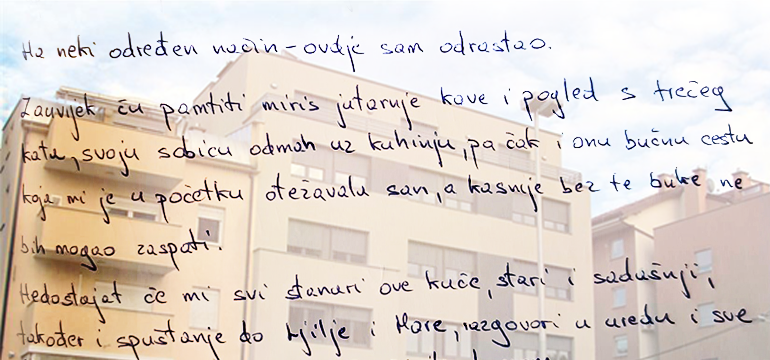 Na neki određen način - ovdje sam odrastao.
Zauvijek ću pamtiti miris jutarnje kave i pogled s trećeg
kata, svoju sobicu odmah uz kuhinju, pa čak i onu bučnu cestu
koja mi je u početku otežavala san, a kasnije bez te buke ne
bih mogao zaspati.
Nedostajat će mi svi stanari ove kuće, stari i sadašnji,
također i spuštanje do Ljilje i Mare, razgovori u uredu i sve